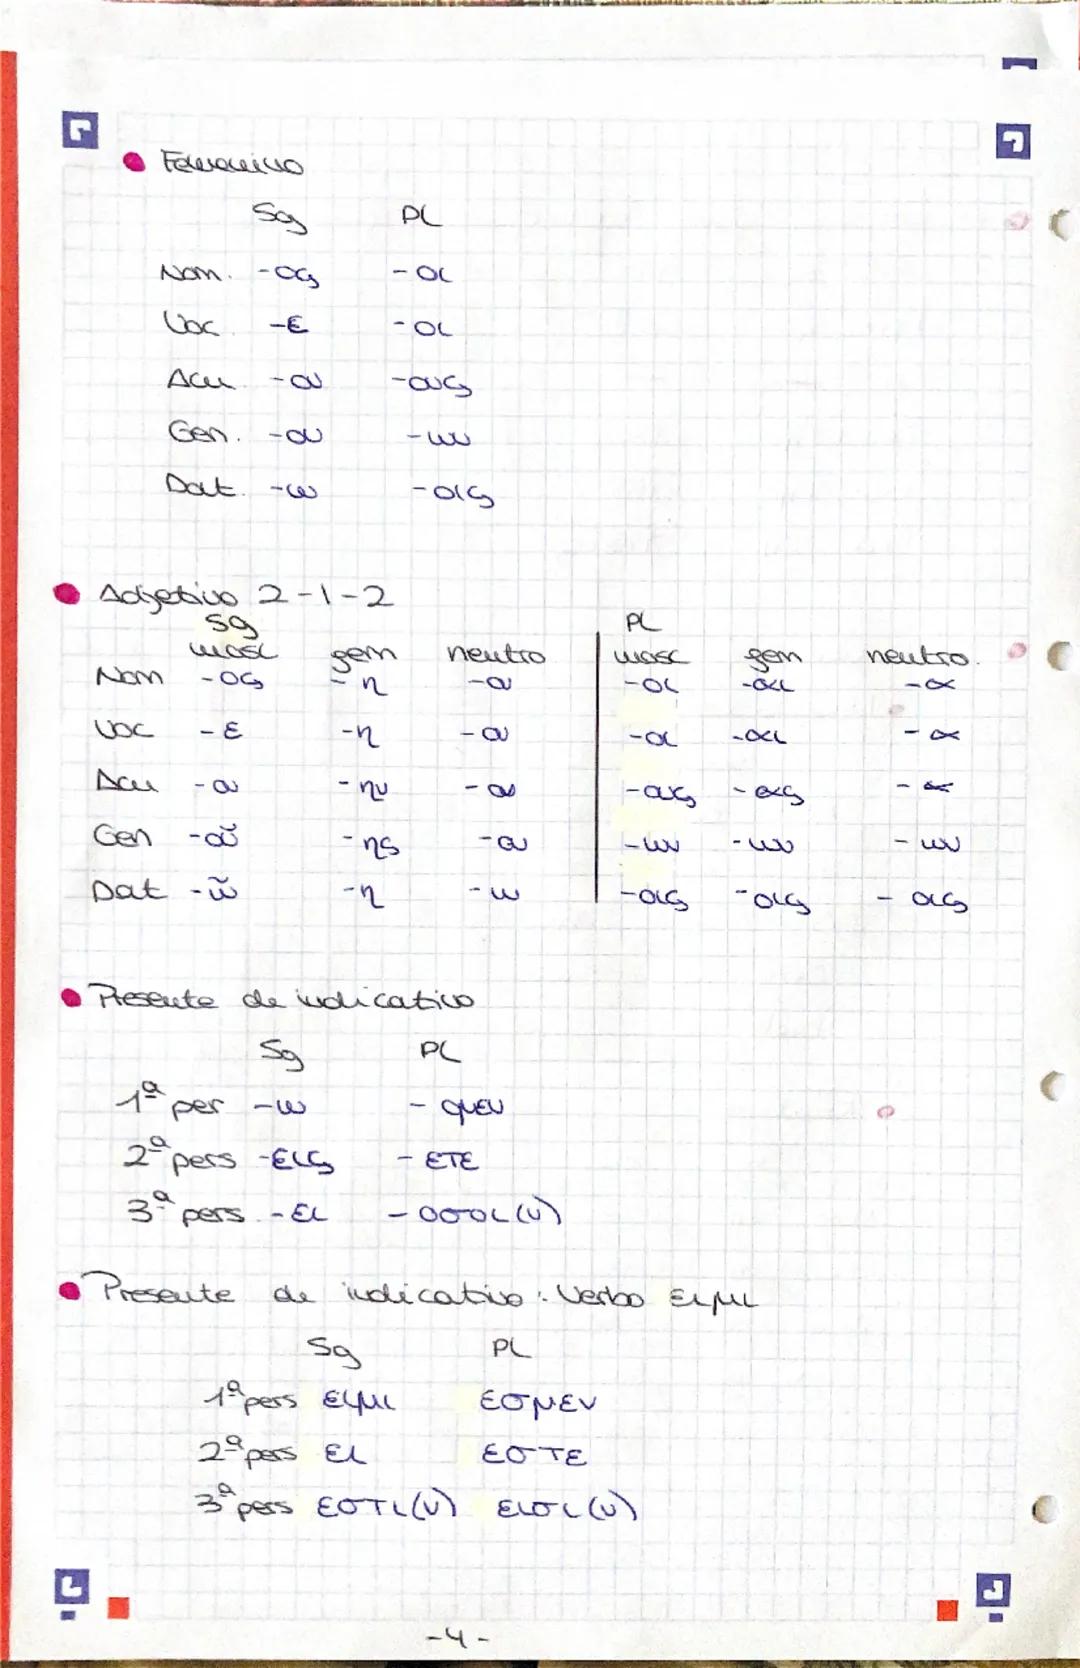 Femenino
Sg PL
Nom. -ος -οι
Voc. -ε -οι
Acu. -ον -ους
Gen. -ου -ων
Dat. -ω -οις
Adjetivo 2-1-2
Sg PL
masc fem neutro masc fem neutro.
Nom -ος -η -ον -οι -αι -α
Voc -ε -η -ον -οι -αι -α
Acu -ον -ην -ον -ους -ας -α
Gen -οῦ -ης -ου -ων -ων -ων
Dat -ῶ -η -ω -οις -οις -οις
Presente de indicativo
Sg PL
1ª per -ω -ομεν
2ª pers -εις -ετε
3ª pers. -ει -οσσι(ν)
Presente de indicativo: Verbo ειμι
Sg PL
1ª pers ειμι εσμεν
2ª pers ει εστε
3ª pers εστι(ν) εισι(ν)
-4-